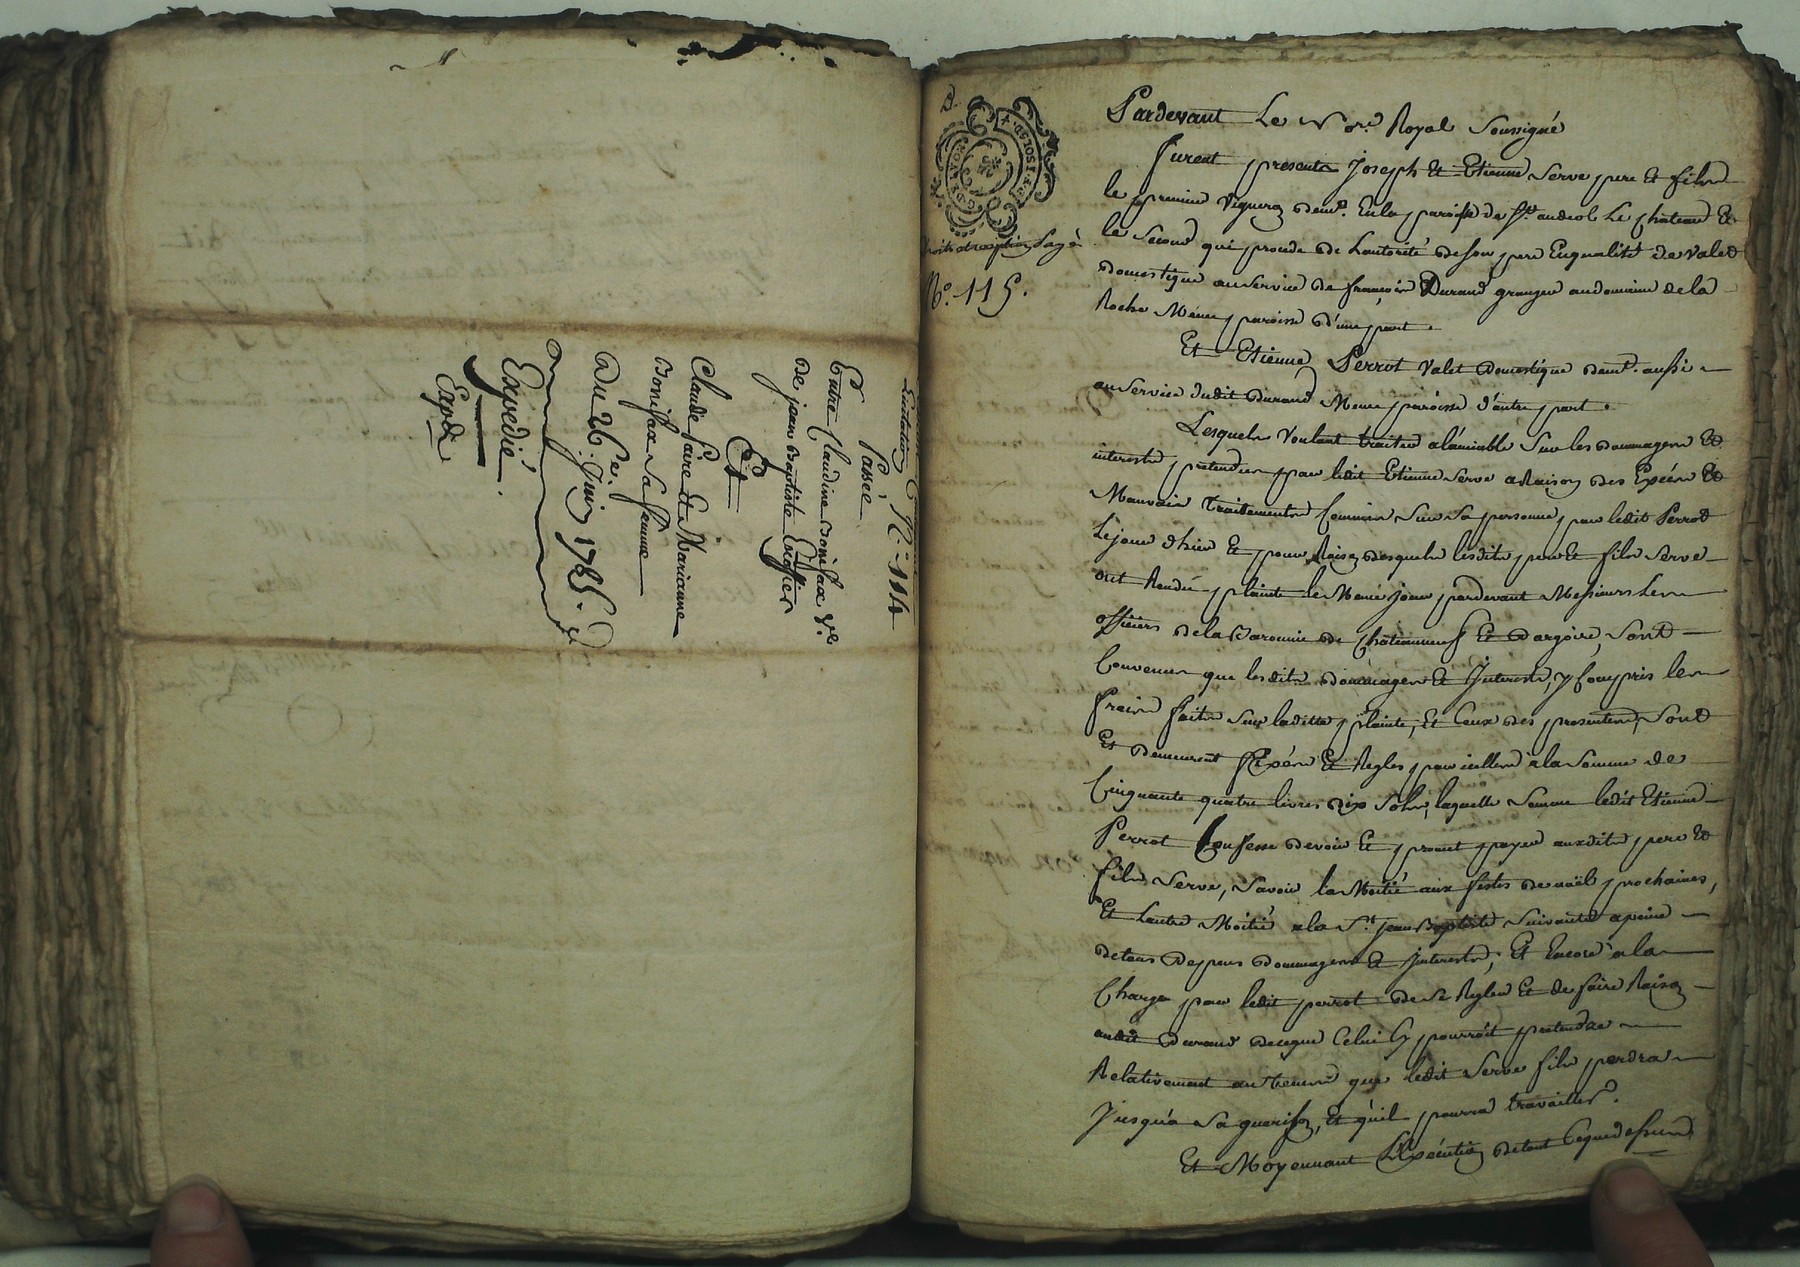 N.° 114
Passée
Entre Claudine Bonifax v.e
de jean Baptiste Escoffier
Et
Claude faire et Mariannne
Bonifax Sa femme
Du 26.e Juin 1785.
Expedié.
Expdé
Droits de reception payé
N.° 115.
Pardevant Le No.re Royal Soussigné
furent presents Joseph Et Etienne Serve pere Et fils
le premier Vigneron dem.t En la paroisse de S.t andeol Le château Et
le Second qui procede de Lautorité de Son pere En qualité de Valet
domestique au Service de françois Durand granger au domaine de la
Roche Meme paroisse d'une part.
Et Etienne Perrot Valet Domestique dem.t aussi
au Service dudit Durand Meme paroisse d'autre part.
Lesquels Voulant traiter a l'amiable Sur les dommages Et
interests pretendus par ledit Etienne Serve a Raison des Excés Et
Mauvais traitements Commis Sur Sa personne par ledit Perrot
Le jour d'hier Et pour Raison desquels lesdits pere Et fils Serve
ont Rendu plainte le Meme jour pardevant Messieurs Les
officiers de la Baronnie de Châteauneuf Et Dargoire, Sont
Convenus que lesdits dommages Et Interests, y Compris les
fraix faits Sur laditte plainte, Et Ceux des presentes, Sont
Et demeurent fixés Et Reglés pour iceller a la Somme de
Cinquante quatre livres dix Sols, laquelle Somme ledit Etienne
Perrot Confesse devoir Et promet payer auxdits pere Et
fils Serve, Savoir la Moitié aux festes de noël prochaines,
Et Lautre Moitié a la S.t jean Baptiste Suivante a peine
de tous Depens dommages Et Interests; Et Encore a la
Charge par ledit perrot de Se Regler Et de faire Raison
audit Durand de ceque Celui Cy pourroit pretendre
Relativement au tems que ledit Serve fils perdra
jusqu'a Sa guerison, Et qu'il pourra travailler.
Et Moyennant L'Exécution de tout Ceque dessus